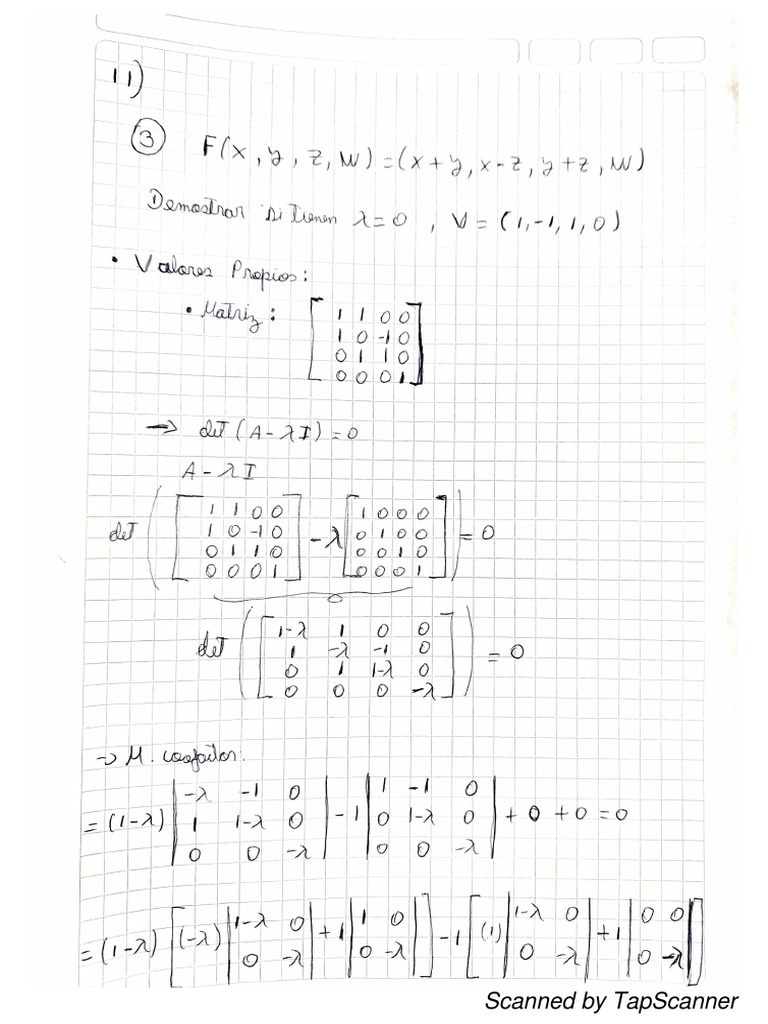 11)
③ F(x, y, z, w) = (x+y, x-z, y+z, w)
Demostrar si tienen λ=0, V=(1,-1,1,0)
• Valores Propios:
• Matriz:
[1 1 0 0
1 0 -1 0
0 1 1 0
0 0 0 1]
→ det(A-λI)=0
A-λI
det([1 1 0 0
1 0 -1 0
0 1 1 0
0 0 0 1] -λ [1 0 0 0
0 1 0 0
0 0 1 0
0 0 0 1]) = 0
det([1-λ 1 0 0
1 -λ -1 0
0 1 1-λ 0
0 0 0 -λ]) = 0
→ M. cofactor:
=(1-λ) |-λ -1 0
1 1-λ 0
0 0 -λ| -1 |1 -1 0
0 1-λ 0
0 0 -λ| +0 +0 =0
=(1-λ) [(-λ) |1-λ 0
0 -λ| +1 |1 0
0 -λ|] -1 [(1) |1-λ 0
0 -λ| +1 |0 0
0 -λ|]
Scanned by TapScanner